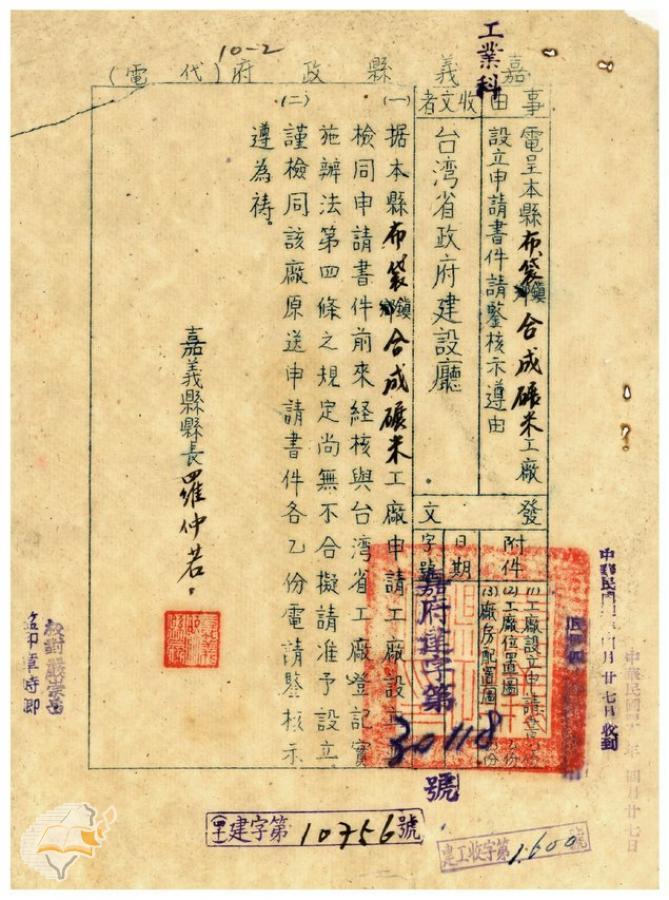 工業科
10-2
嘉義縣政府(代電)
事由
電呈本縣布袋鎮合成碾米工廠
設立申請書件請鑒核示遵由
收文者
台湾省政府建設廳
發文
附件
(1)工廠設立申請書 份
(2)工廠位置圖 份
(3)廠房配置圖 份
日期
字號
嘉府建字第
30118
號
(一)据本縣布袋鎮合成碾米工廠申請工廠設立
檢同申請書件前來経核與台湾省工廠登記實
施辦法第四條之規定尚無不合擬請准予設立
(二)謹檢同該廠原送申請書件各乙份電請鑒核示
遵為禱。
嘉義縣縣長羅仲若。
中華民國 年四月廿七日
月廿七日收到
校對嚴崇岳
建字第10756號
建工收字第1600號